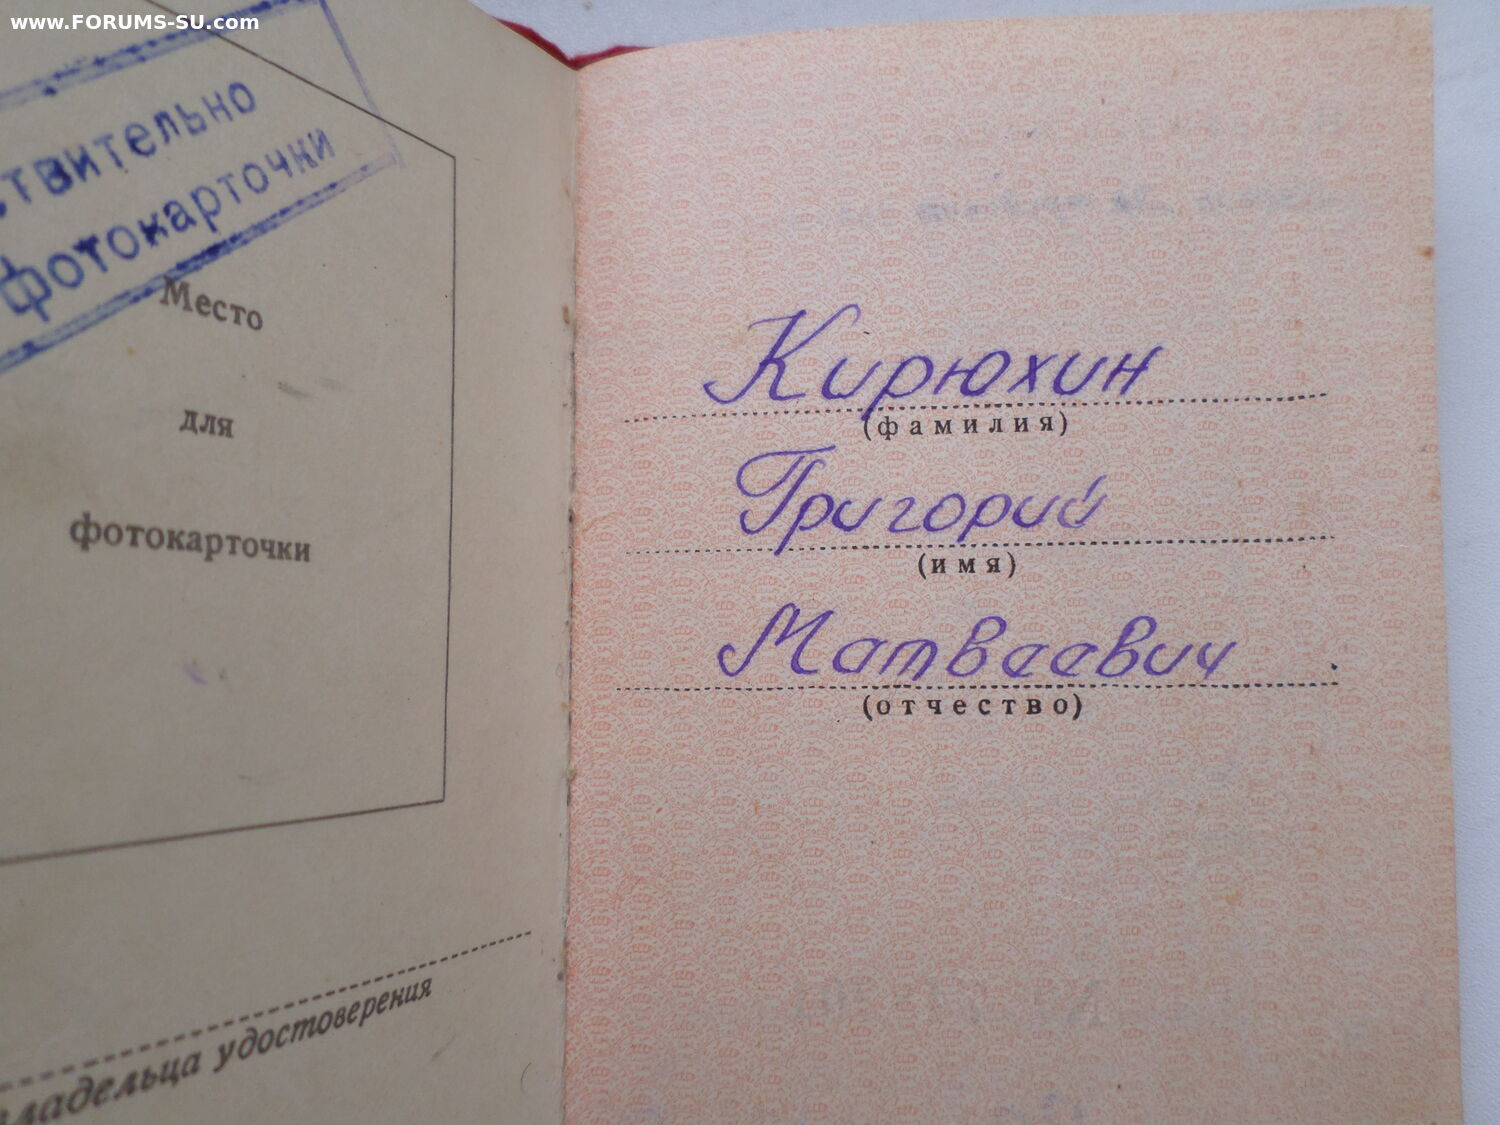 www.FORUMS-SU.com
ствительно
фотокарточки
Место
для
фотокарточки
владельца удостоверения
Кирюхин
(фамилия)
Григорий
(имя)
Матвеевич
(отчество)